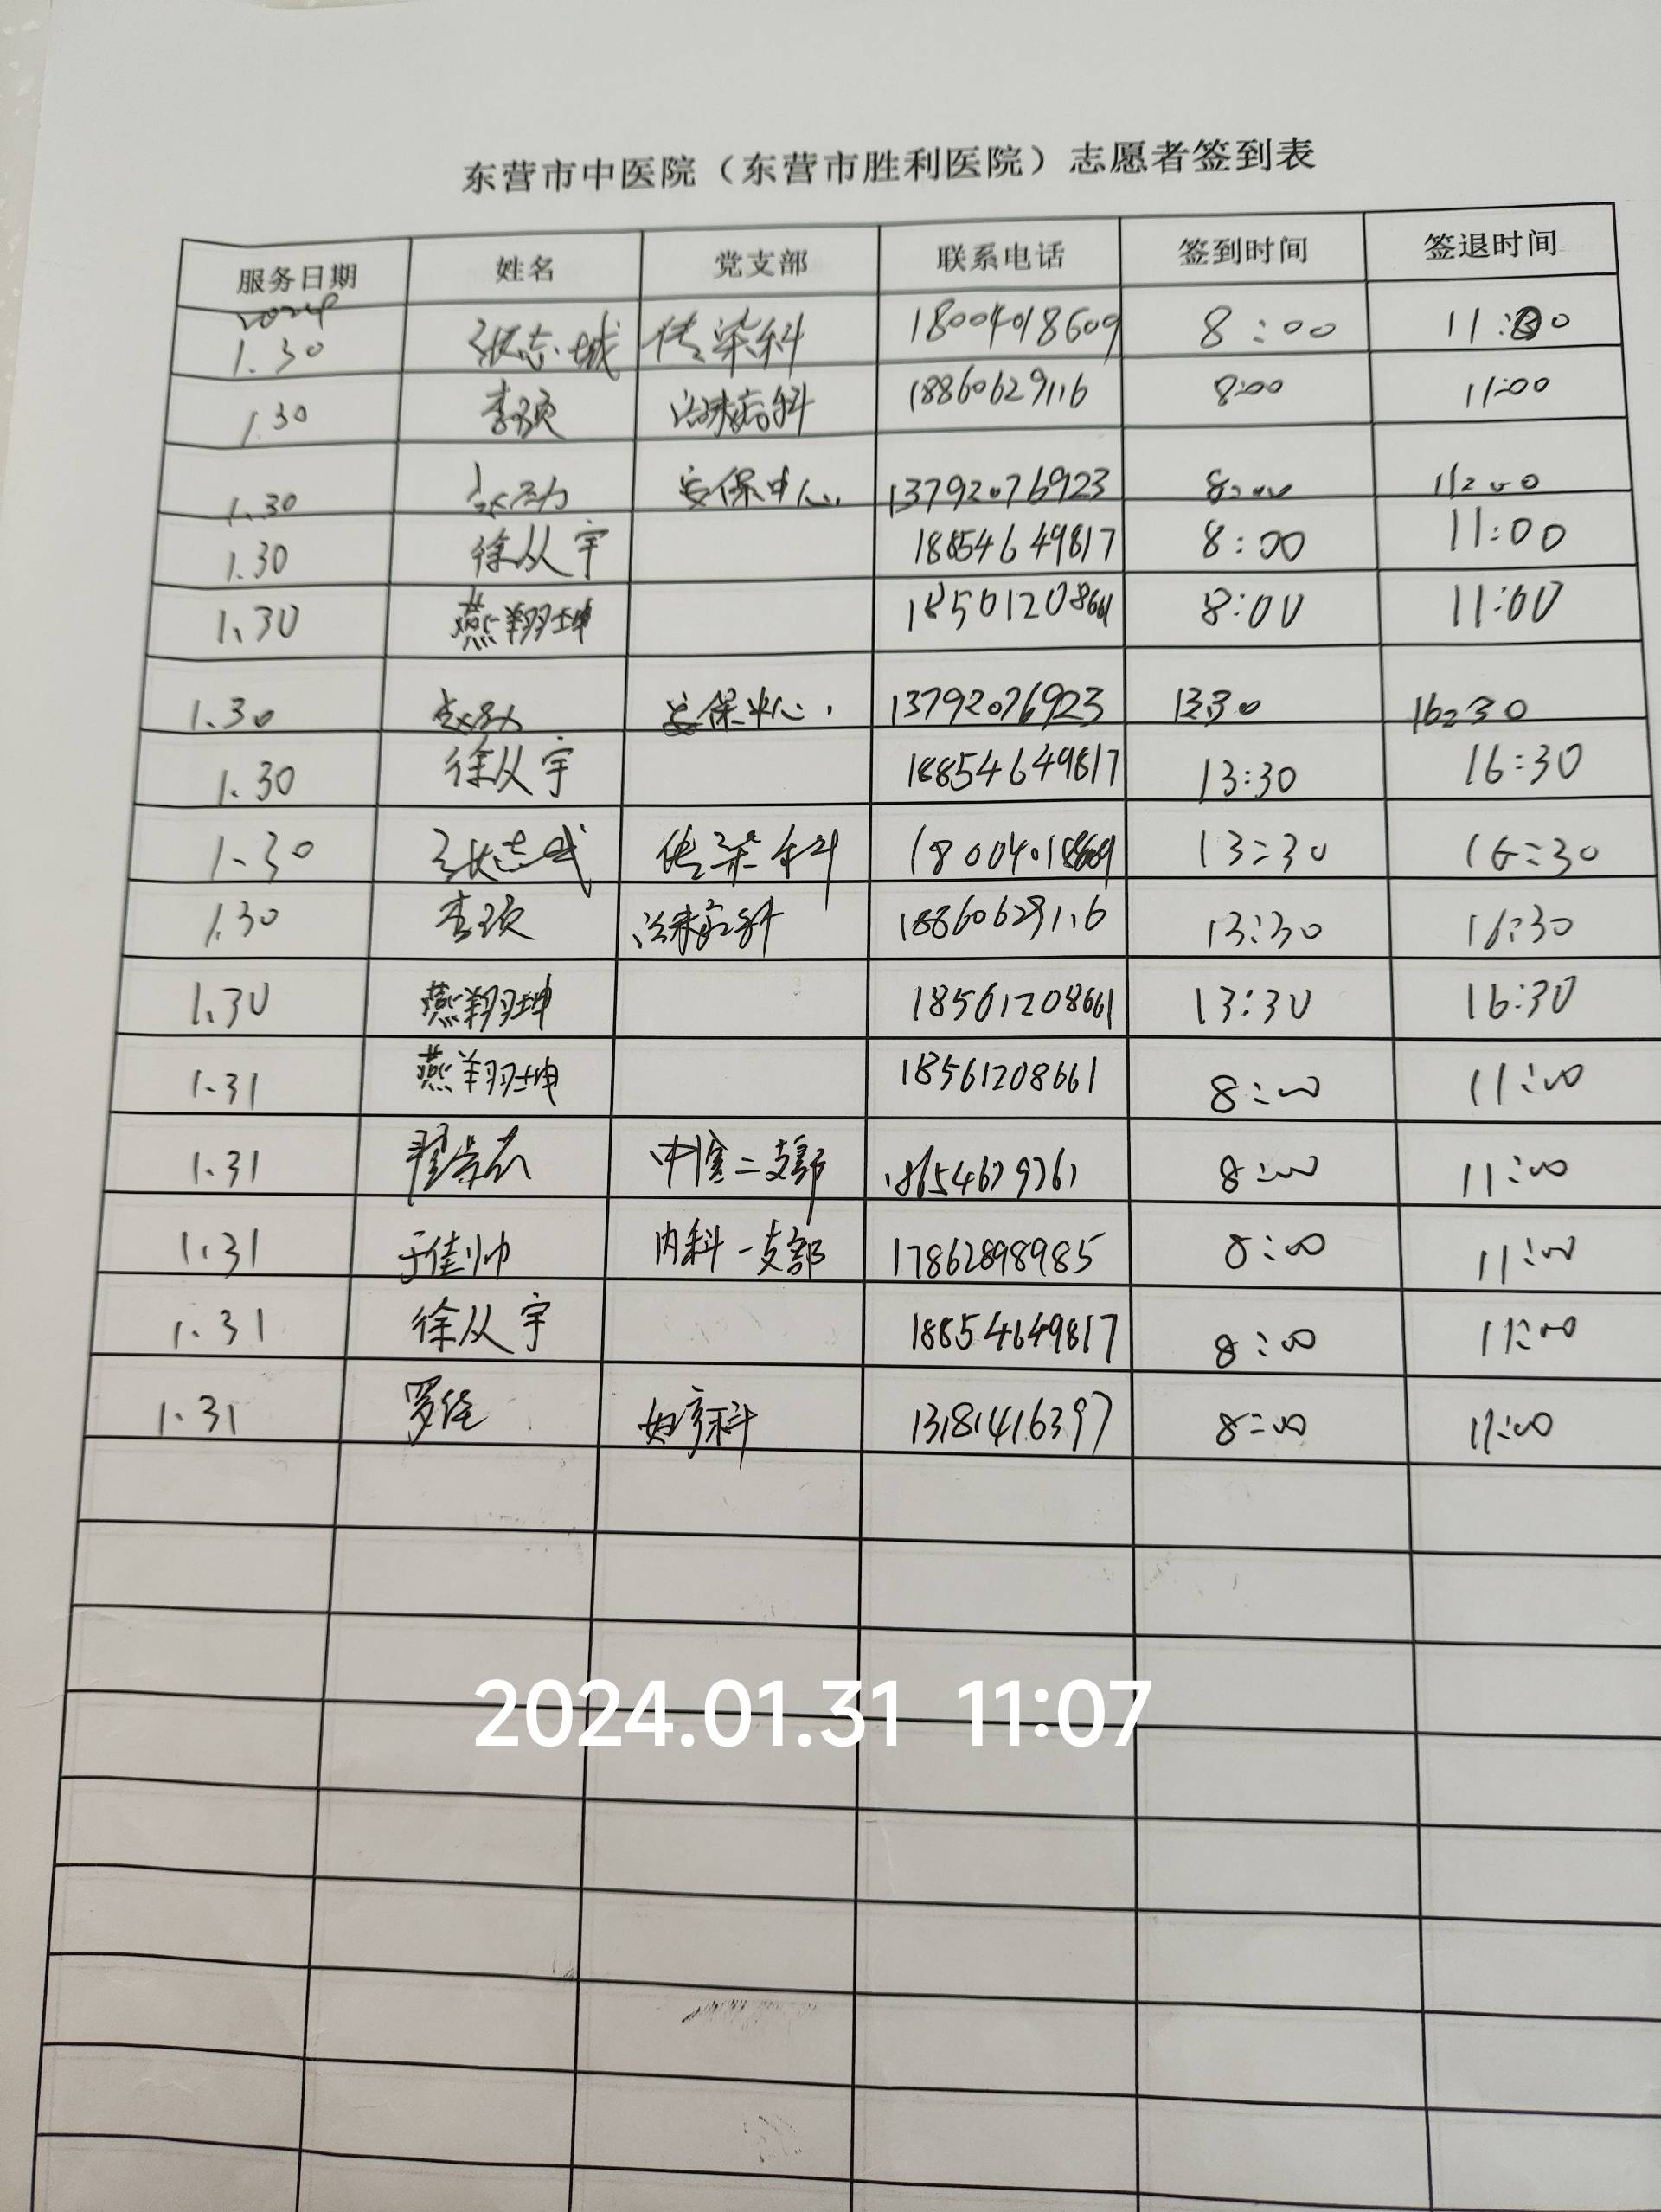 东营市中医院（东营市胜利医院）志愿者签到表
服务日期 姓名 党支部 联系电话 签到时间 签退时间
2024
1.30 张志城 传染科 18004018609 8:00 11:00
1.30 李颂 治未病科 18860629116 8:00 11:00
1.30 安保中心 13792076923 8:00 11:00
1.30 徐从宇 18854649817 8:00 11:00
1.30 燕翔坤 18561208661 8:00 11:00
1.30 安保中心 13792076923 13:30 16:30
1.30 徐从宇 18854649817 13:30 16:30
1.30 张志城 传染科 18004018609 13:30 16:30
1.30 李颂 治未病科 18860629116 13:30 16:30
1.30 燕翔坤 18561208661 13:30 16:30
1.31 燕翔坤 18561208661 8:00 11:00
1.31 二支部 8:00 11:00
1.31 于佳帅 内科一支部 17862898985 8:00 11:00
1.31 徐从宇 18854649817 8:00 11:00
1.31 罗佳 妇产科 13181416397 8:00 11:00
2024.01.31 11:07